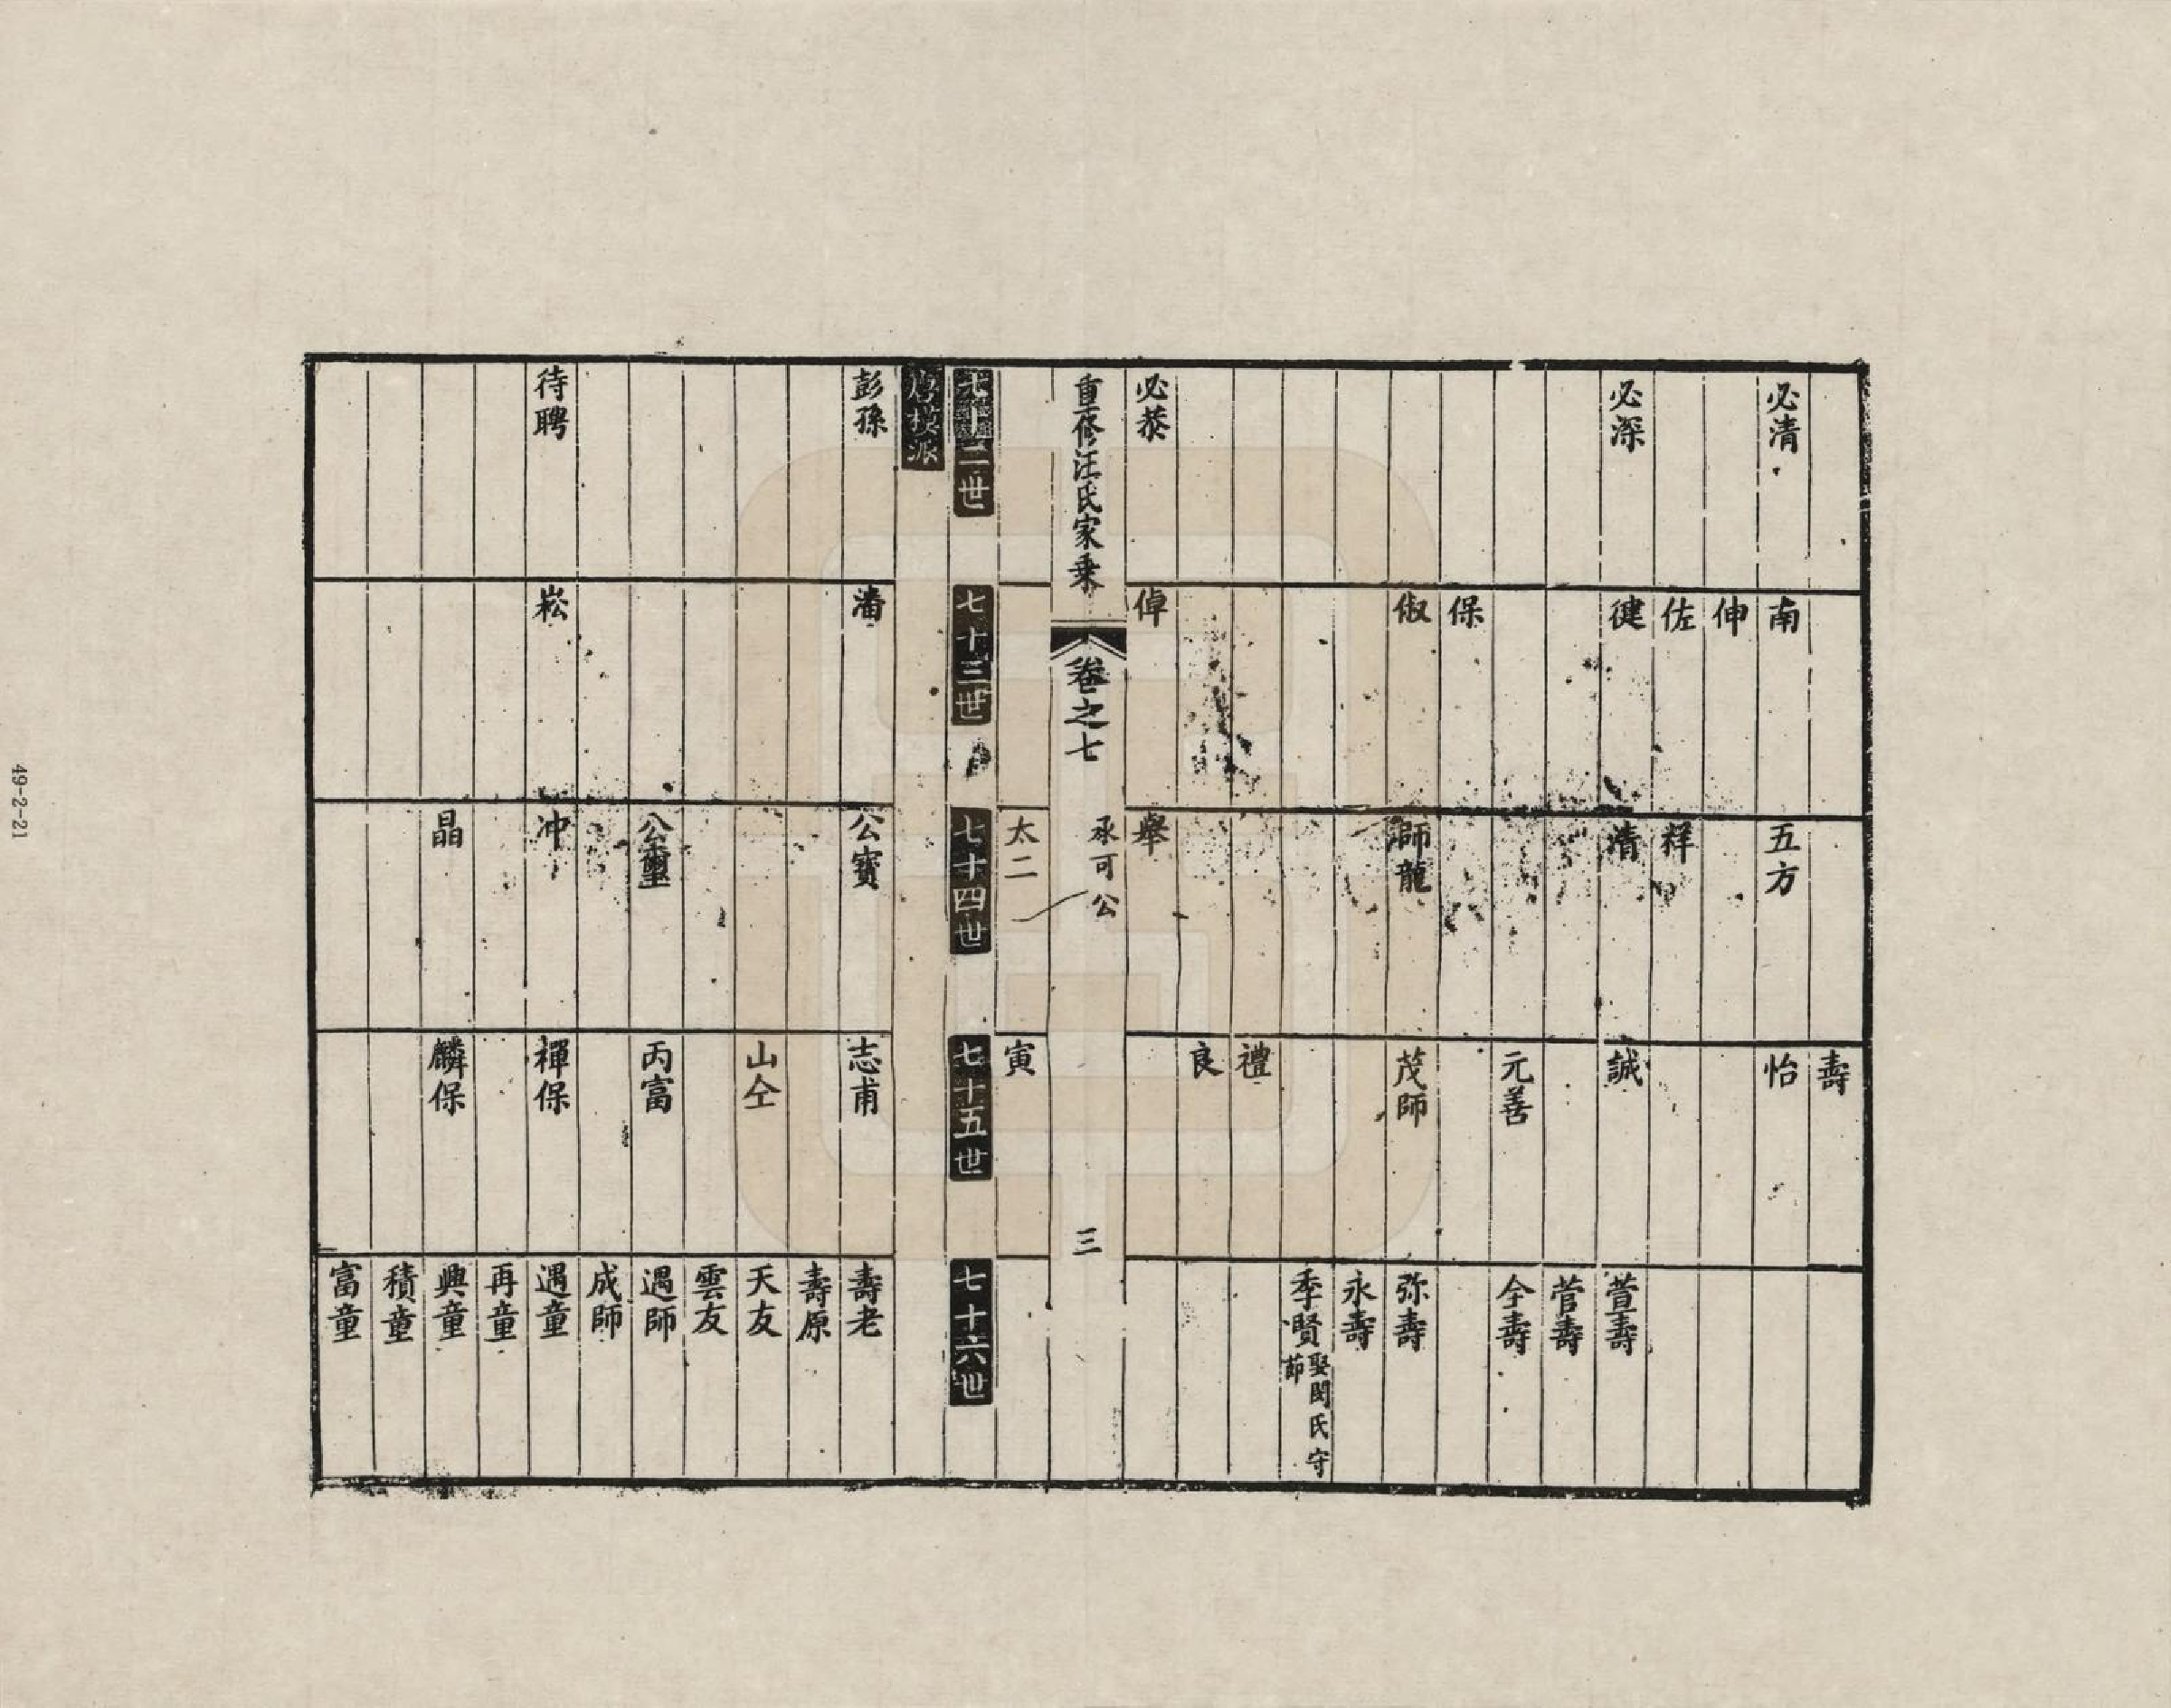 壽
怡
必清
南
五方
伸
佐
祥
必深
健
清
誠
萱壽
菅壽
元善
仝壽
保
俶
師龍
茂師
弥壽
永壽
季賢娶閔氏守
節
禮
良
必恭
倬
舉
重修汪氏家乘
卷之七
承可公
三
太二
寅
七十二世
七十三世
七十四世
七十五世
七十六世
派
彭孫
潘
公寶
志甫
壽老
壽原
山仝
天友
雲友
公璽
丙富
遇師
成師
待聘
崧
冲
禈保
遇童
再童
晶
麟保
興童
積童
富童
49-2-21